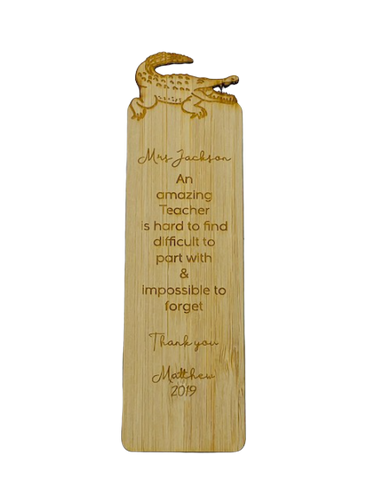 Mrs Jackson
An
amazing
Teacher
is hard to find
difficult to
part with
&
impossible to
forget
Thank you
Matthew
2019